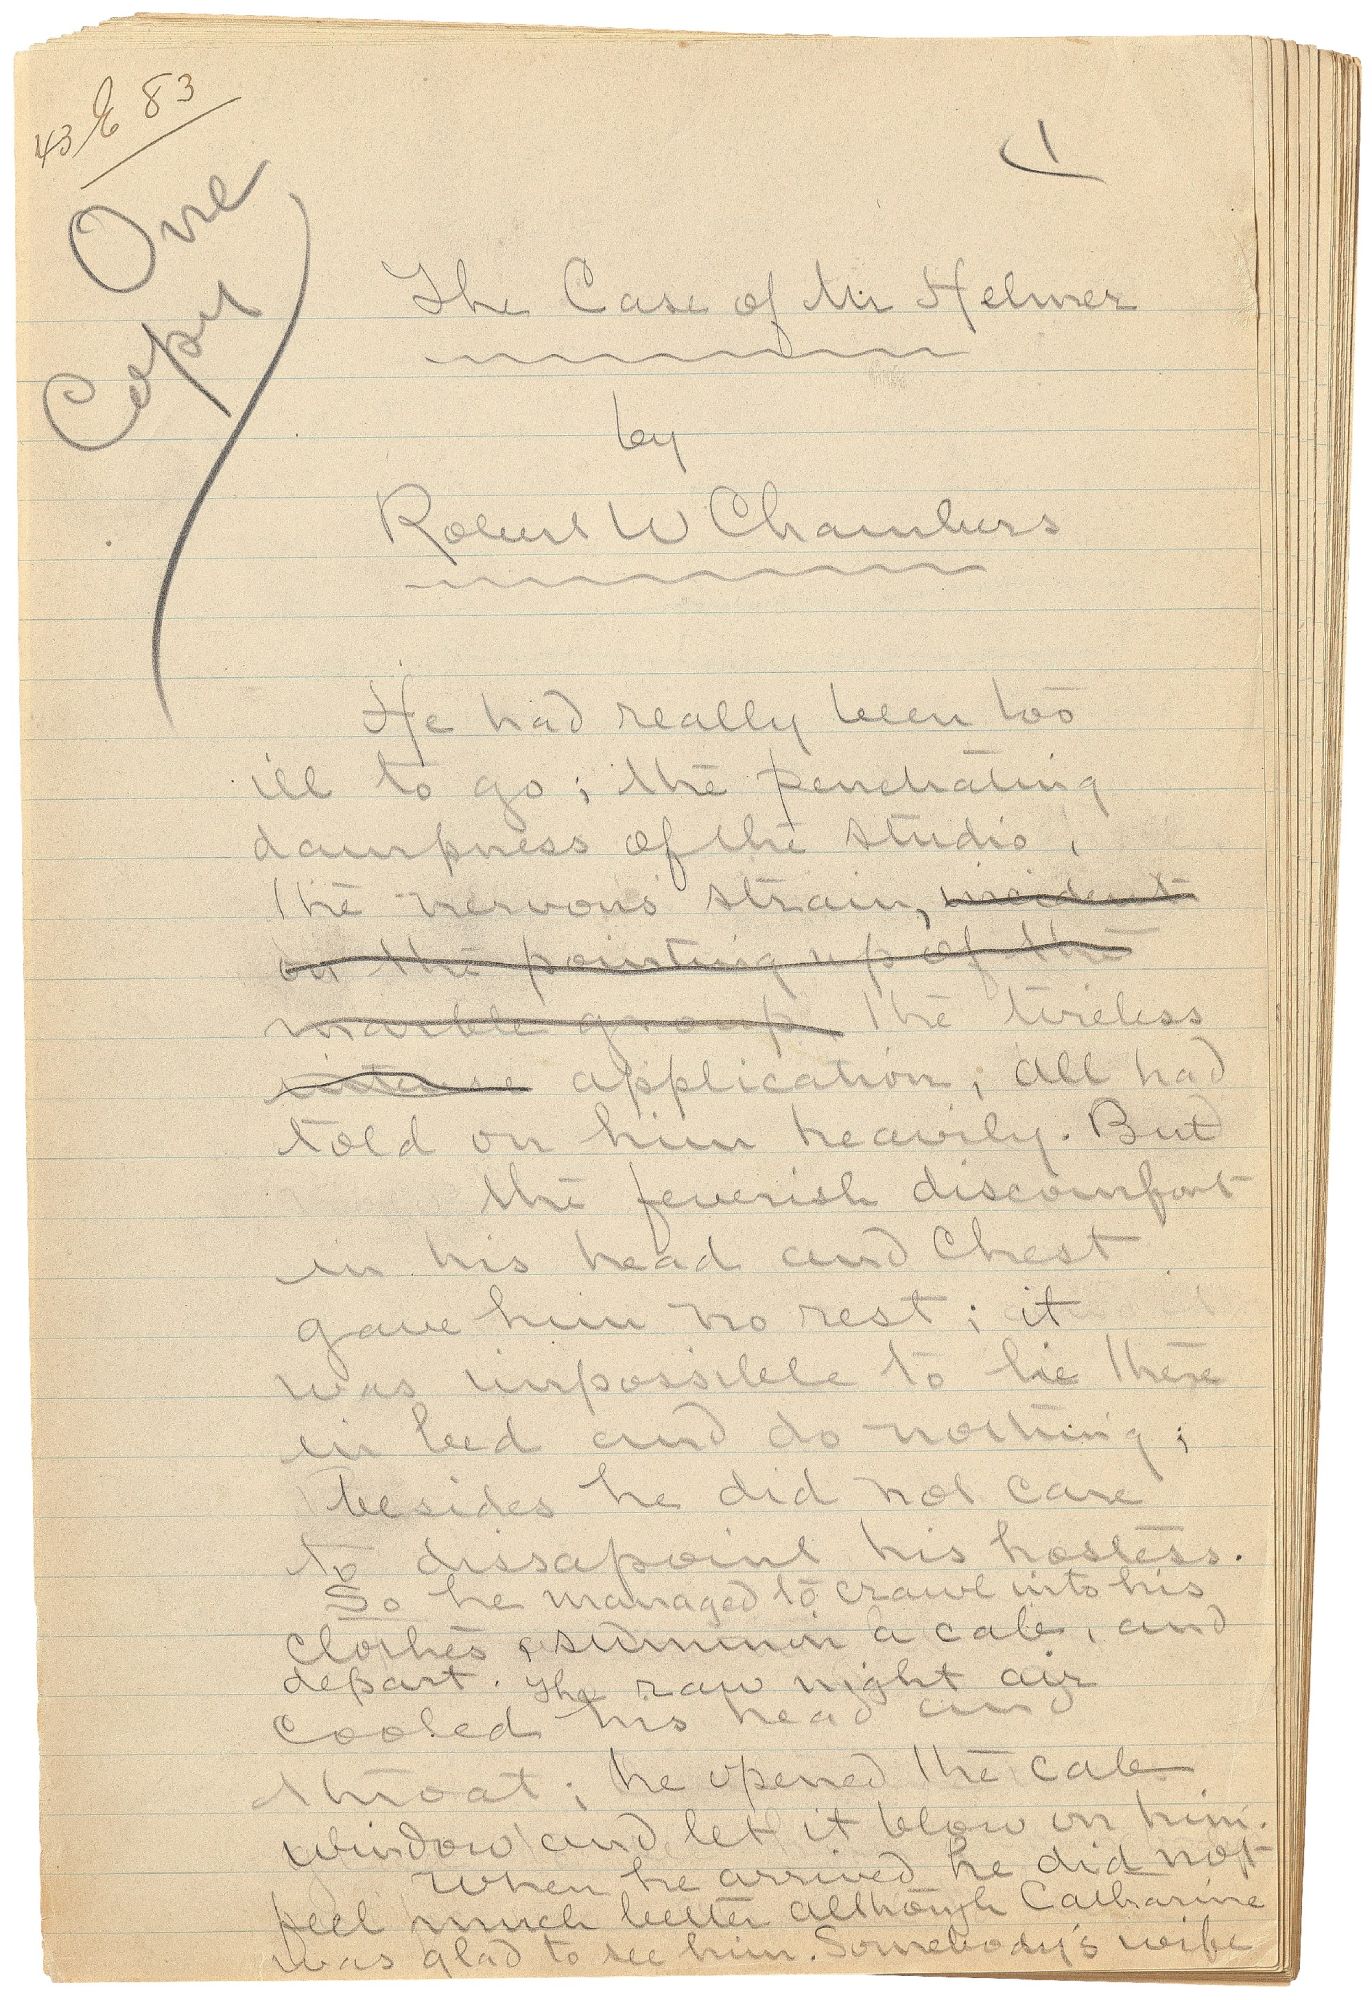 43 & 83
One
Copy
1
The Case of Mr Helmer
by
Robert W Chambers
He had really been too
ill to go; the penetrating
dampness of the studio,
the nervous strain, incident
on the pointing up of the
marble group, the tireless
intense application, all had
told on him heavily. But
the feverish discomfort
in his head and Chest
gave him no rest; it
was impossible to lie there
in bed and do nothing;
besides he did not care
to dissapoint his hostess.
So he managed to crawl into his
clothes, summon a cab, and
depart. The raw night air
Cooled his head and
throat; he opened the cab
window and let it blow on him.
When he arrived he did not
feel much better although Catharine
was glad to see him. Somebody's wife